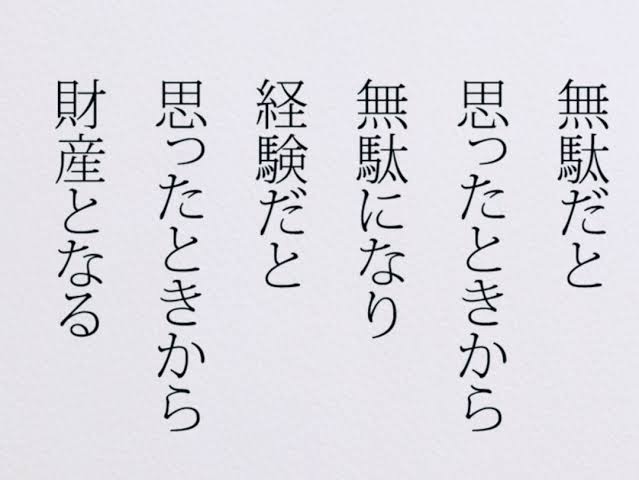 無駄だと
思ったときから
無駄になり
経験だと
思ったときから
財産となる